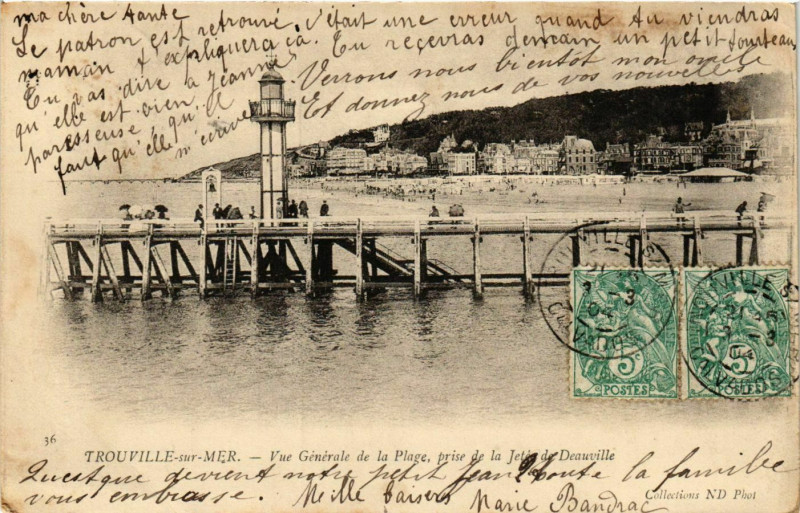 ma chère tante
Le patron est retrouvé, c'était une erreur quand tu viendras
maman t'expliquera ça. Tu recevras demain un petit tourteau
Tu vas dire à Jeanne
qu'elle est bien
paresseuse, qu'il
faut qu'elle
m'écrive
Verrons nous bientôt mon oncle
Et donnez nous de vos nouvelles
TROUVILLE
CALVADOS
5c
POSTES
TROUVILLE
CALVADOS
5c
POSTES
36
TROUVILLE-sur-MER. — Vue Générale de la Plage, prise de la Jetée de Deauville
Quest que devient notre petit Jean? toute la famille
vous embrasse. Mille baisers Marie Bandrac
Collections ND Phot